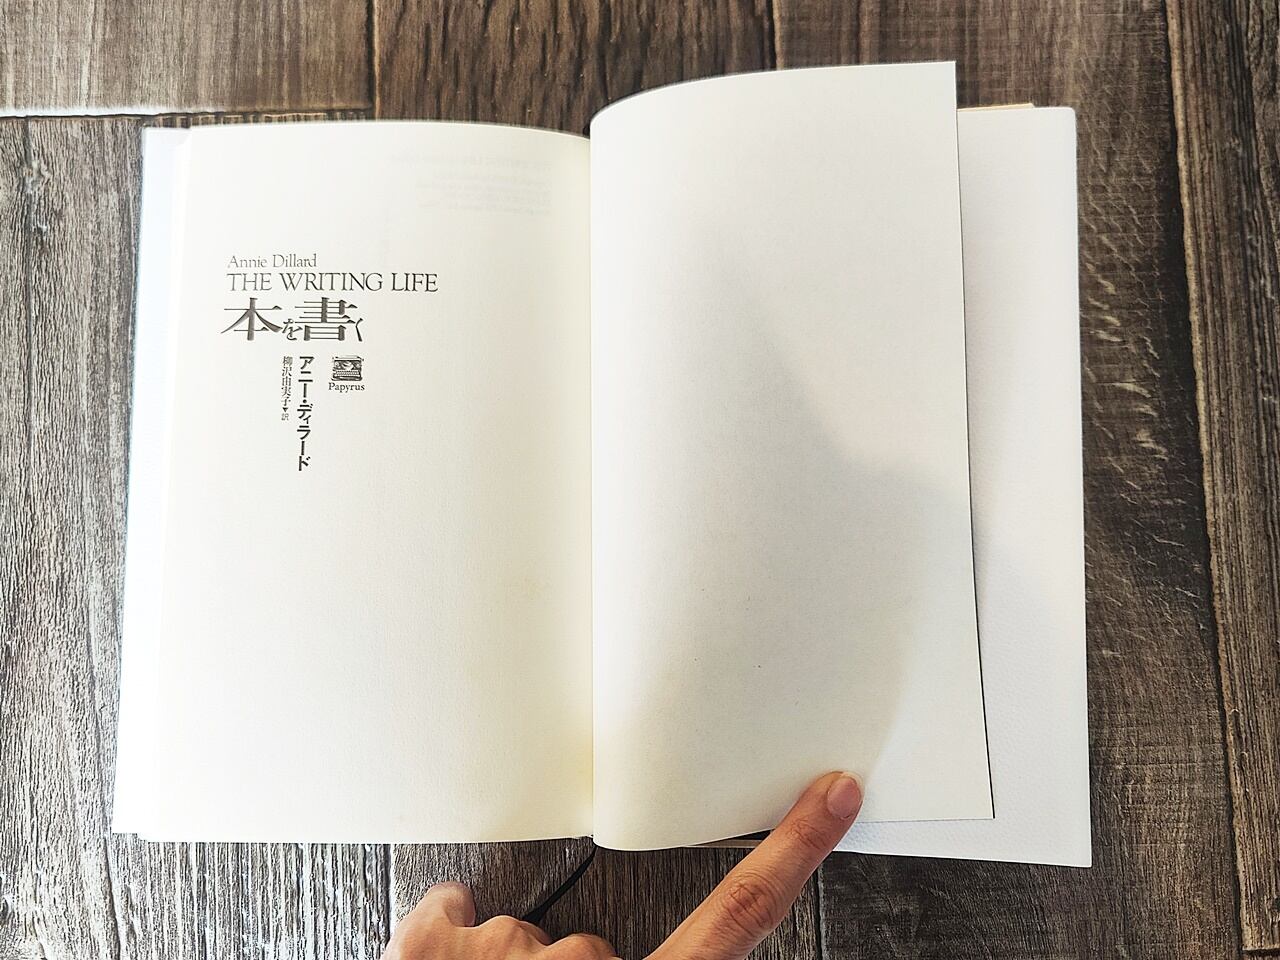 Annie Dillard
THE WRITING LIFE
本を書く
アニー・ディラード
柳沢由実子▼訳
Papyrus